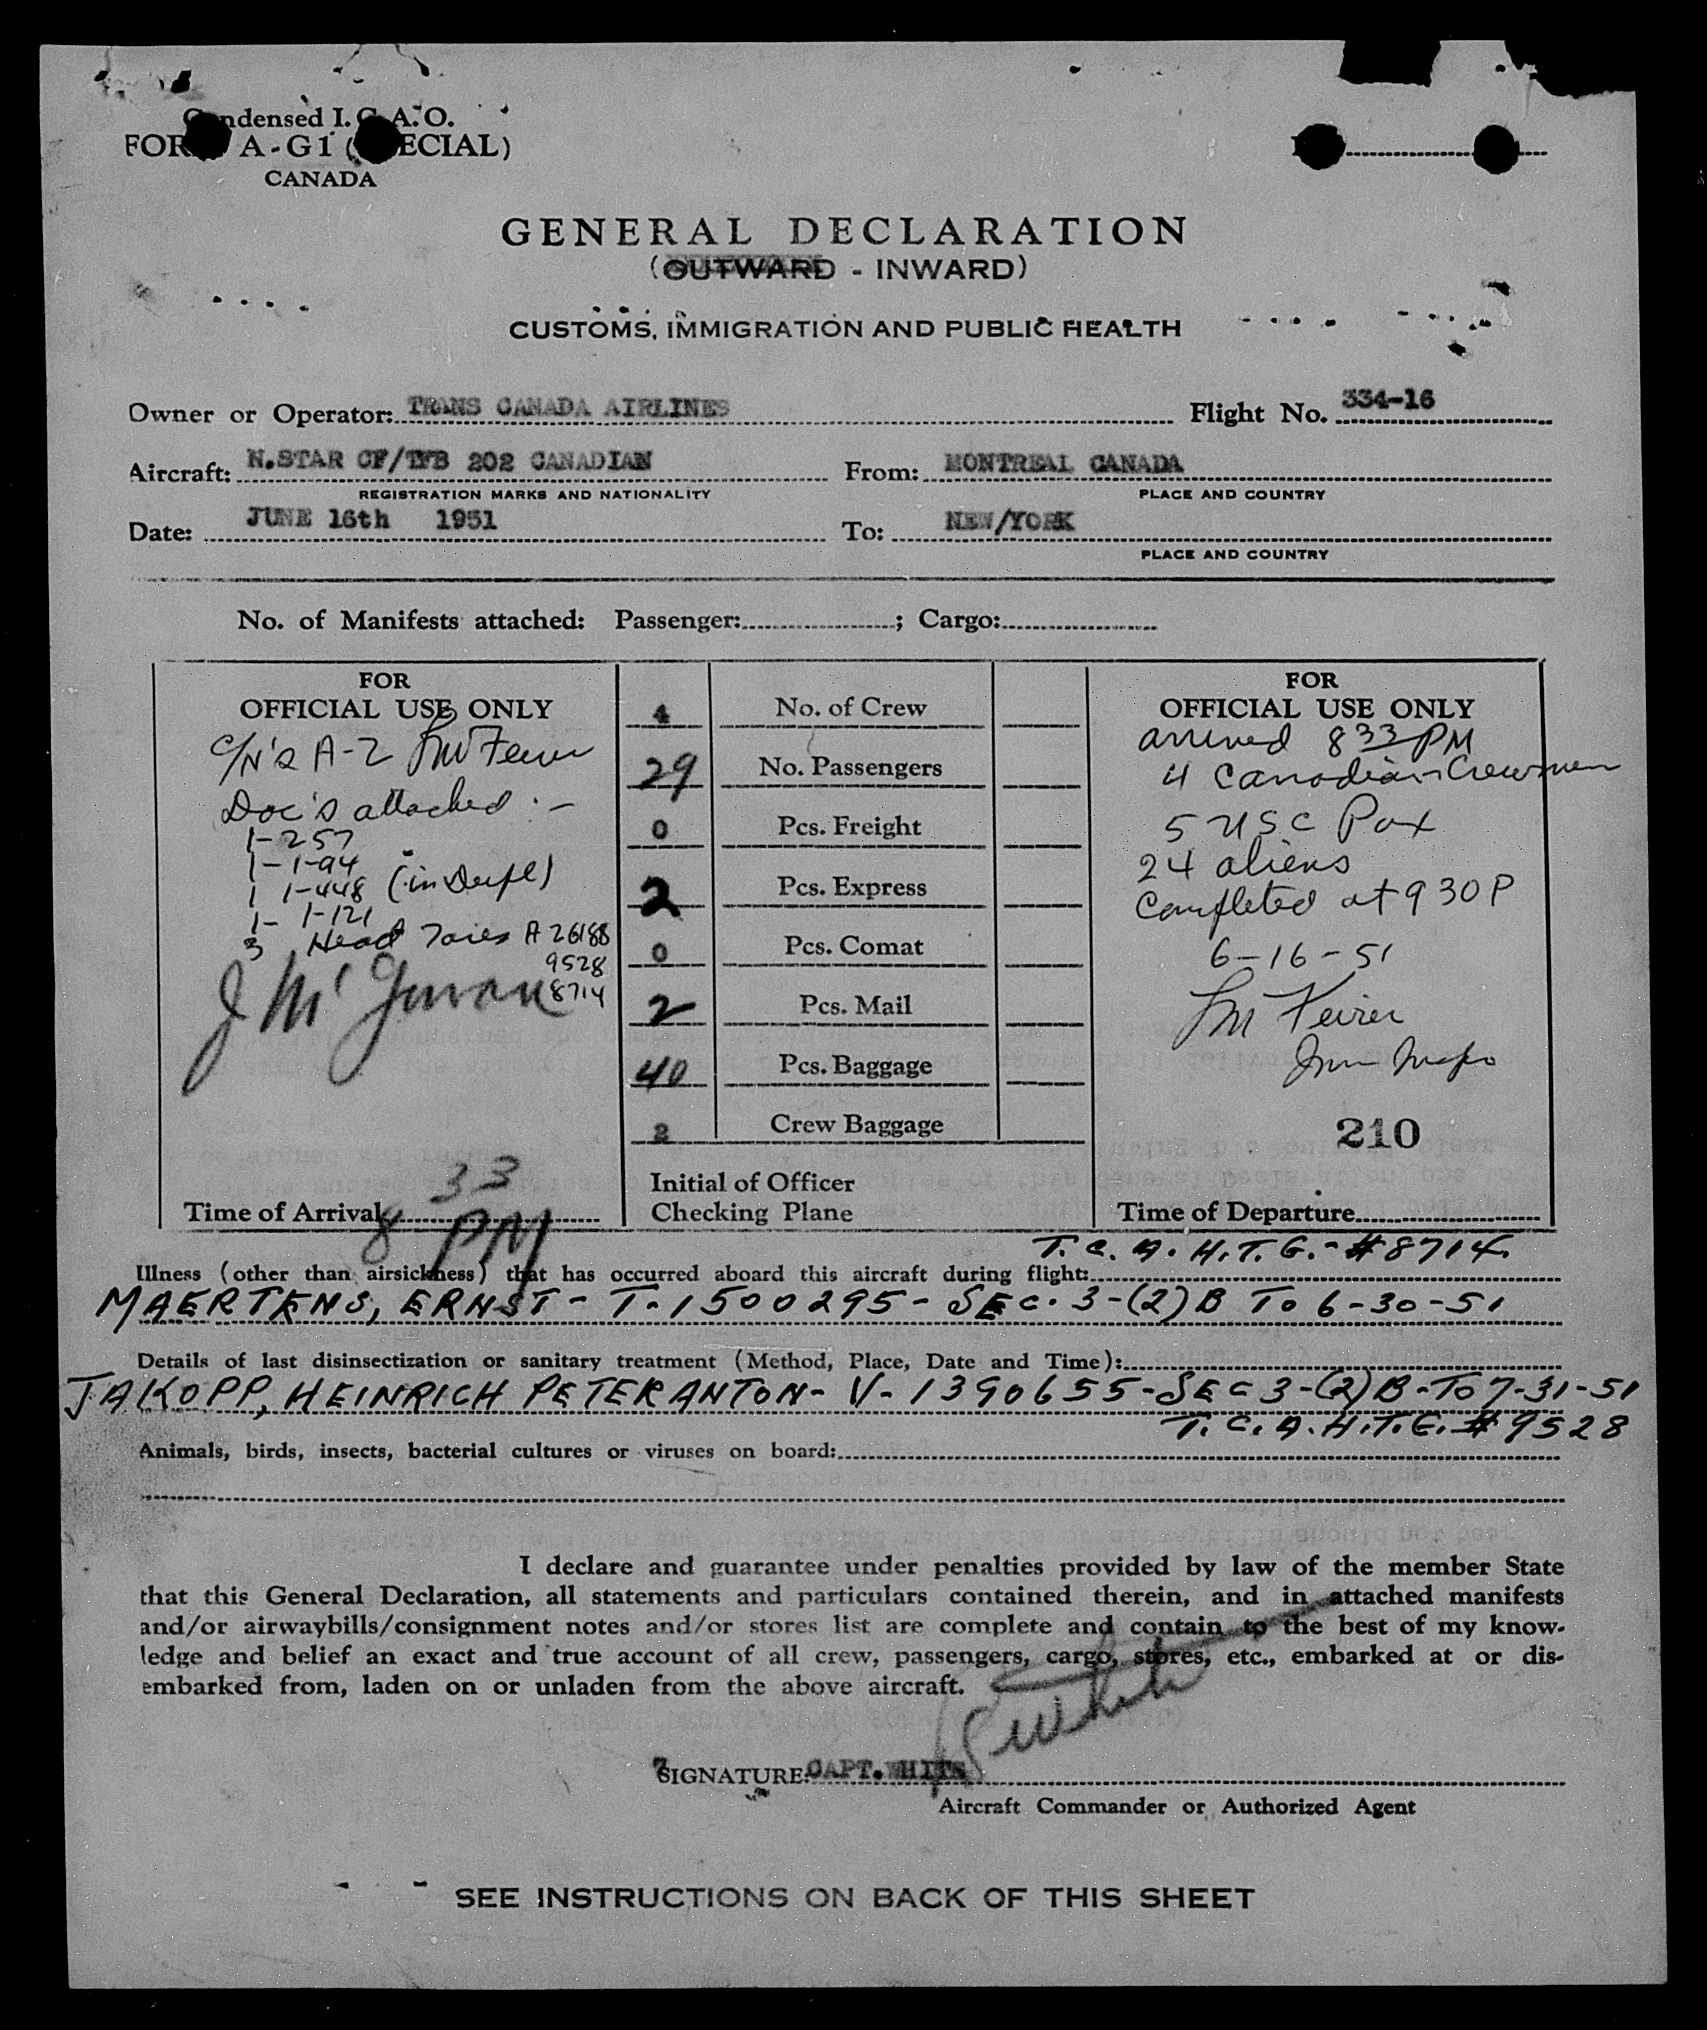 Condensed I.C.A.O.
FORM A-G1 (SPECIAL)
CANADA
GENERAL DECLARATION
(OUTWARD - INWARD)
CUSTOMS, IMMIGRATION AND PUBLIC HEALTH
Owner or Operator: TRANS CANADA AIRLINES Flight No. 334-16
Aircraft: N.STAR CF/TFB 202 CANADIAN From: MONTREAL CANADA
REGISTRATION MARKS AND NATIONALITY PLACE AND COUNTRY
Date: JUNE 16th 1951 To: NEW/YORK
PLACE AND COUNTRY
No. of Manifests attached: Passenger: ; Cargo:
FOR
OFFICIAL USE ONLY
C/N's A-2
Doc's attached :-
1-257
1-1-94
1 1-448 (in Dupl)
1- 1-121
3 Head Taxes A 26188
9528
8714
J McGowan
Time of Arrival 8 33 PM
4 No. of Crew
29 No. Passengers
0 Pcs. Freight
2 Pcs. Express
0 Pcs. Comat
2 Pcs. Mail
40 Pcs. Baggage
2 Crew Baggage
Initial of Officer
Checking Plane
FOR
OFFICIAL USE ONLY
arrived 8 33 PM
4 Canadian Crewmen
5 USC Pax
24 aliens
Completed at 9 30 P
6-16-51
Imm Insp
210
Time of Departure
T.C.A. H.T.G.- #8714.
Illness (other than airsickness) that has occurred aboard this aircraft during flight:
MAERTENS, ERNST - T-1500295 - SEC. 3-(2)B TO 6-30-51
Details of last disinsectization or sanitary treatment (Method, Place, Date and Time):
JAKOPP, HEINRICH PETER ANTON - V-1390655 - SEC 3-(2)B - TO 7-31-51
T.C.A. H.T.G. #9528
Animals, birds, insects, bacterial cultures or viruses on board:
I declare and guarantee under penalties provided by law of the member State
that this General Declaration, all statements and particulars contained therein, and in attached manifests
and/or airwaybills/consignment notes and/or stores list are complete and contain to the best of my know-
ledge and belief an exact and true account of all crew, passengers, cargo, stores, etc., embarked at or dis-
embarked from, laden on or unladen from the above aircraft.
White
SIGNATURE: CAPT. WHITE
Aircraft Commander or Authorized Agent
SEE INSTRUCTIONS ON BACK OF THIS SHEET